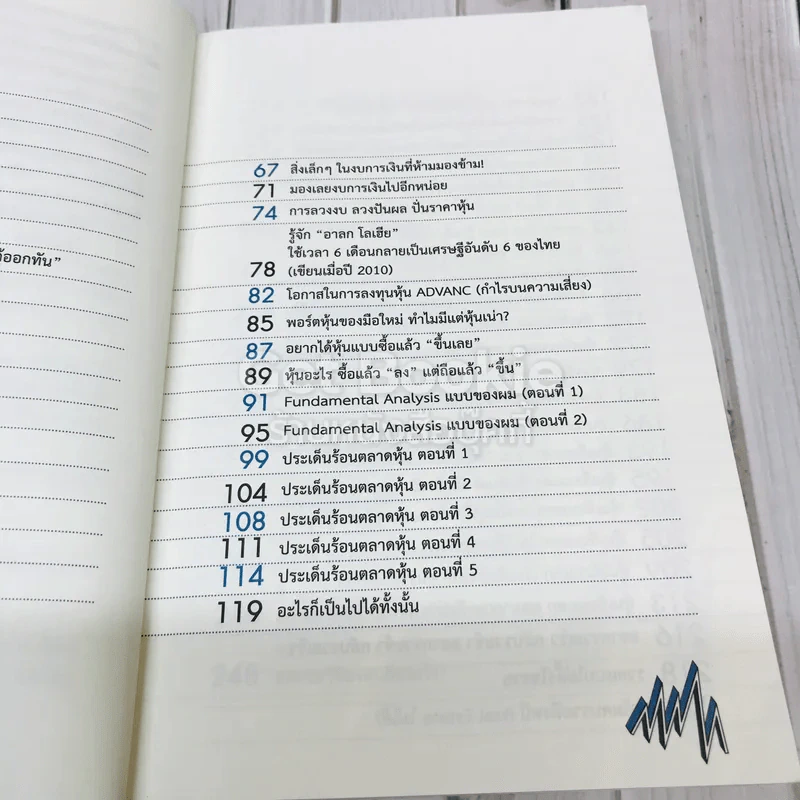 ้ออกทัน”
67 สิ่งเล็กๆ ในงบการเงินที่ห้ามมองข้าม!
71 มองเลยงบการเงินไปอีกหน่อย
74 การลวงงบ ลวงปันผล ปั่นราคาหุ้น
รู้จัก “อาลก โลเฮีย”
ใช้เวลา 6 เดือนกลายเป็นเศรษฐีอันดับ 6 ของไทย
78 (เขียนเมื่อปี 2010)
82 โอกาสในการลงทุนหุ้น ADVANC (กำไรบนความเสี่ยง)
85 พอร์ตหุ้นของมือใหม่ ทำไมมีแต่หุ้นเน่า?
87 อยากได้หุ้นแบบซื้อแล้ว “ขึ้นเลย”
89 หุ้นอะไร ซื้อแล้ว “ลง” แต่ถือแล้ว “ขึ้น”
91 Fundamental Analysis แบบของผม (ตอนที่ 1)
95 Fundamental Analysis แบบของผม (ตอนที่ 2)
99 ประเด็นร้อนตลาดหุ้น ตอนที่ 1
104 ประเด็นร้อนตลาดหุ้น ตอนที่ 2
108 ประเด็นร้อนตลาดหุ้น ตอนที่ 3
111 ประเด็นร้อนตลาดหุ้น ตอนที่ 4
114 ประเด็นร้อนตลาดหุ้น ตอนที่ 5
119 อะไรก็เป็นไปได้ทั้งนั้น